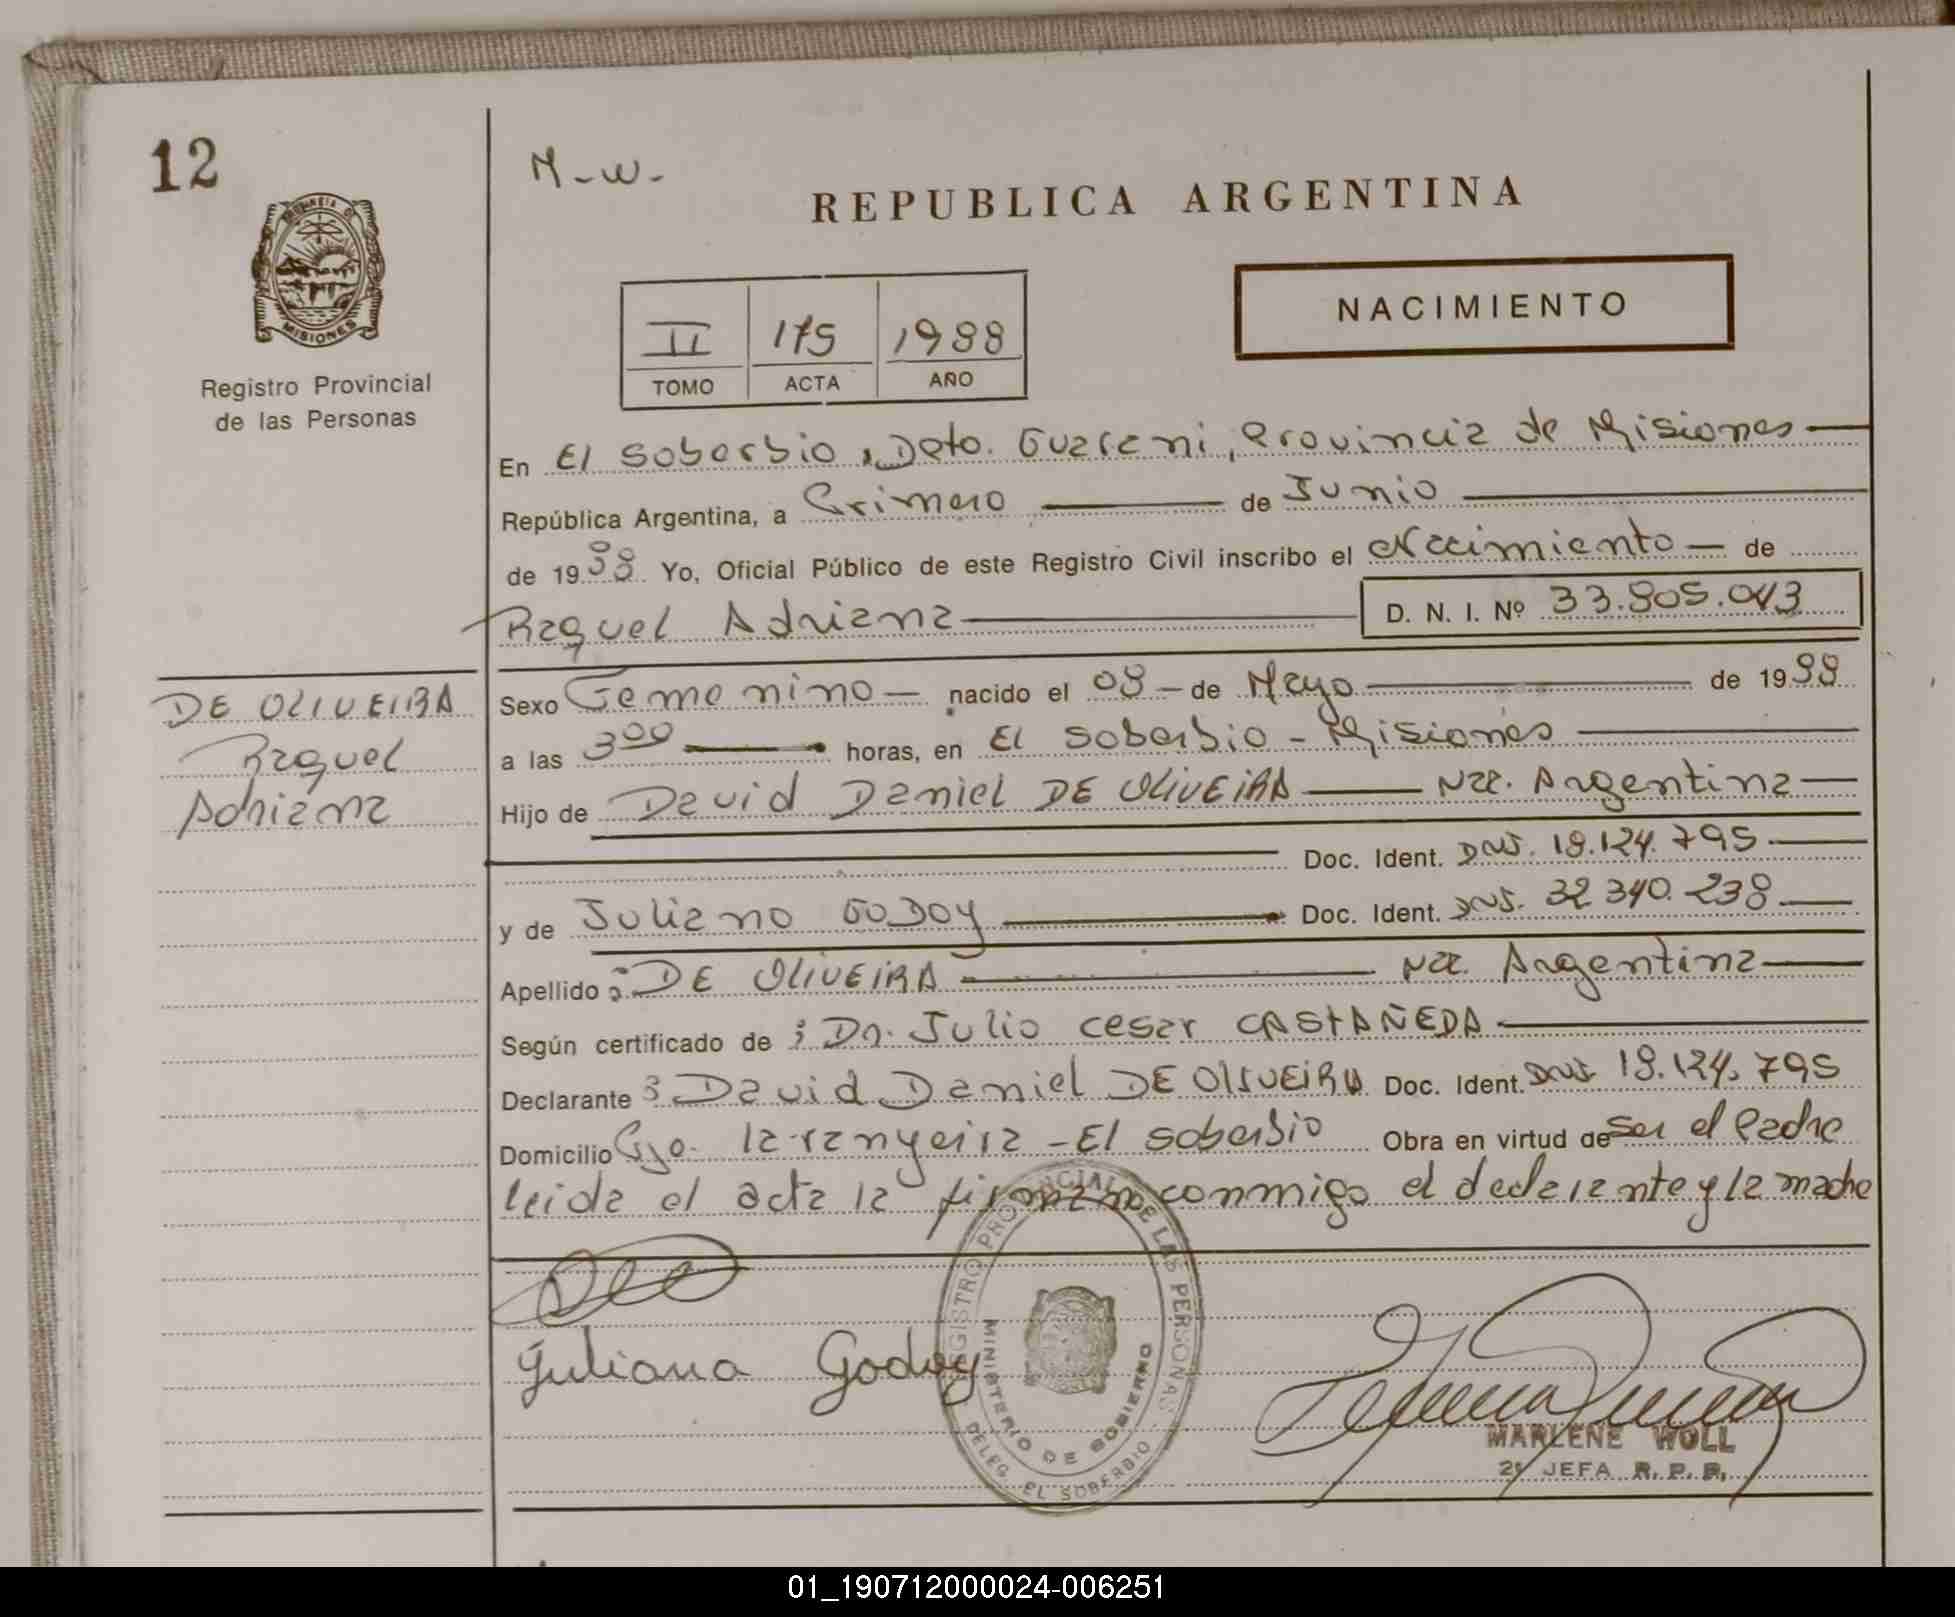 12
M-w-
REPUBLICA ARGENTINA
PROVINCIA DE
MISIONES
Registro Provincial
de las Personas
II 175 1988
TOMO ACTA AÑO
NACIMIENTO
En El Soberbio, Dpto. Guarani, Provincia de Misiones
República Argentina, a Primero de Junio
de 1988 Yo, Oficial Público de este Registro Civil inscribo el Nacimiento de
Raquel Adriana D. N. I. Nº 33.805.043
DE OLIVEIRA
Raquel
Adriana
Sexo Femenino nacido el 08 de Mayo de 1988
a las 3 00 horas, en El Soberbio - Misiones
Hijo de David Daniel DE OLIVEIRA Nac. Argentina
Doc. Ident. DNI. 18.124.795
y de Juliana GODOY Doc. Ident. DNI. 32 340.238
Apellido: DE OLIVEIRA Nac. Argentina
Según certificado de : Dr. Julio Cesar CASTAÑEDA
Declarante : David Daniel DE OLIVEIRA Doc. Ident. DNI 18.124.795
Domicilio Pje. la ranyeira - El Soberbio Obra en virtud de Ser el Padre
leida el acta la firman conmigo el declarante y la madre
Juliana Godoy
REGISTRO PROVINCIAL DE LAS PERSONAS
MINISTERIO DE GOBIERNO
DELEG. EL SOBERBIO
MARLENE WOLL
2º JEFA R. P. P.
01_190712000024-006251